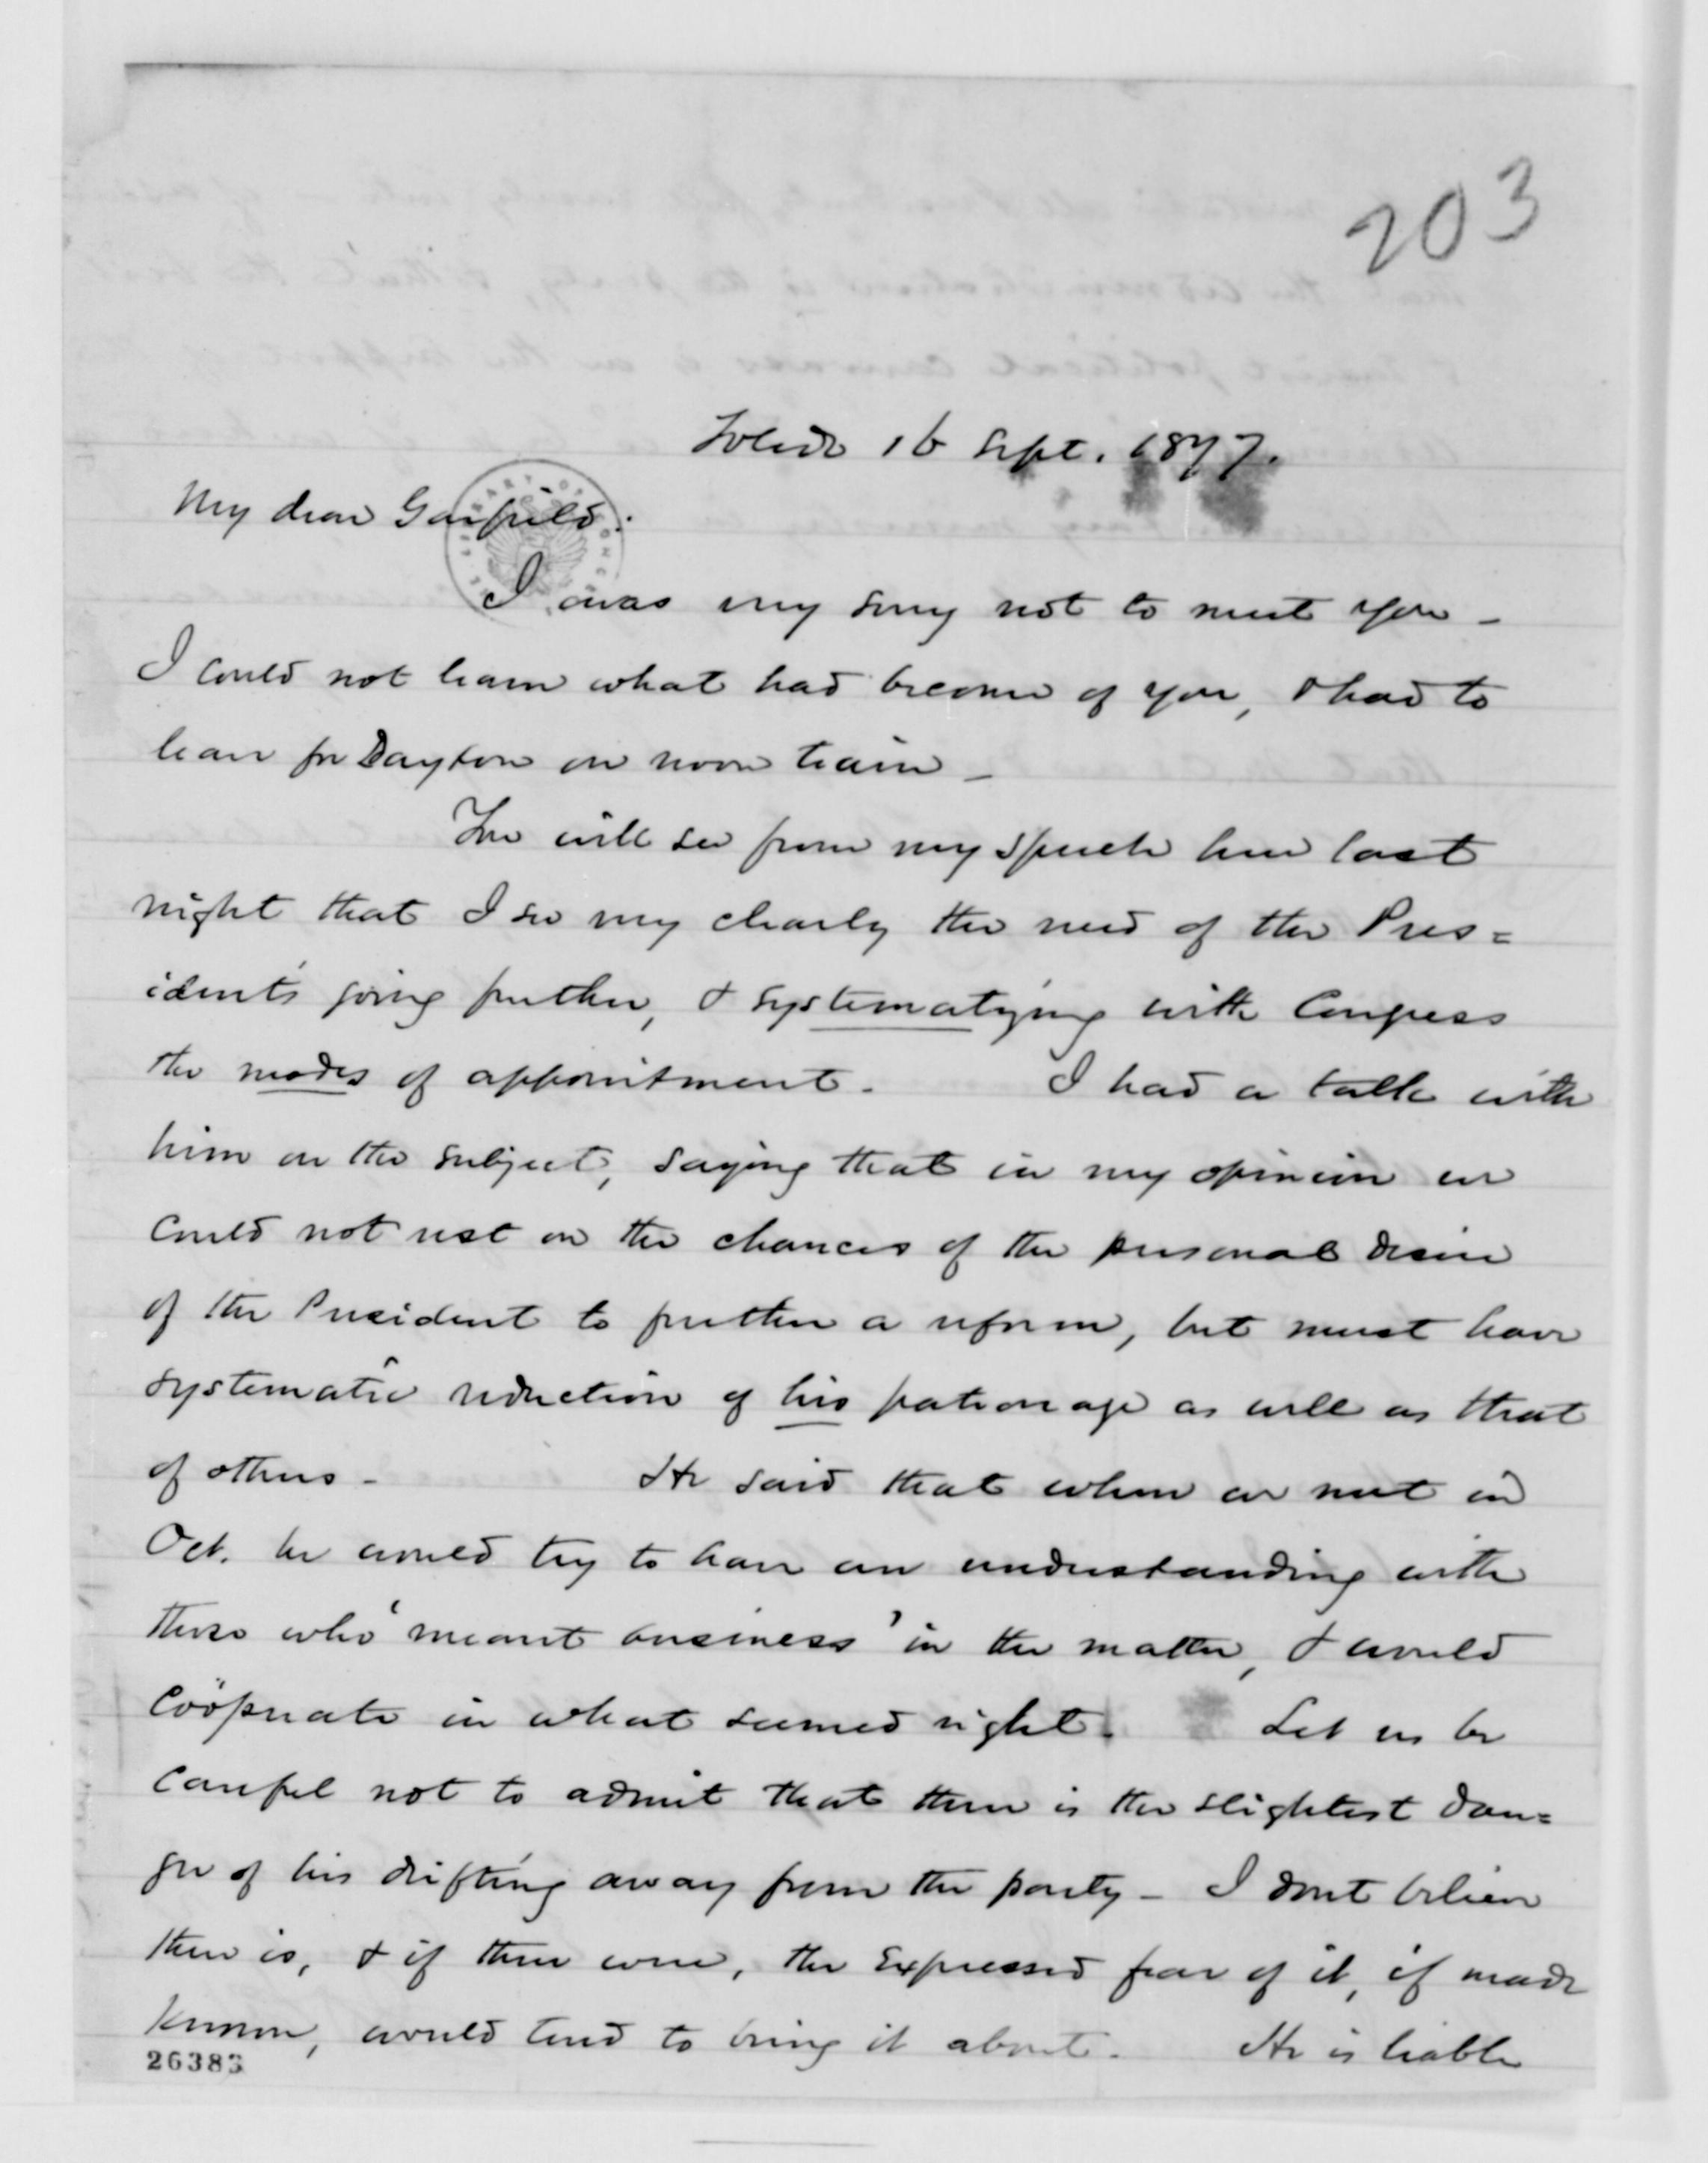 203
Toledo 16 Sept. 1877.
My dear Garfield:
I was very sorry not to meet you –
I could not learn what had become of you, & had to
leave for Dayton on noon train –
You will see from my speech here last
night that I see very clearly the need of the Pres=
ident's going further, & systematizing with Congress
the modes of appointment. I had a talk with
him on the subject, saying that in my opinion we
could not rest on the chances of the personal desire
of the President to further a reform, but must have
systematic reduction of his patronage as well as that
of others – He said that when we met in
Oct. he would try to have an understanding with
those who "meant business" in the matter, & would
coöperate in what seemed right. Let us be
careful not to admit that there is the slightest dan=
ger of his drifting away from the party – I dont believe
there is, & if there were, the expressed fear of it, if made
known, would tend to bring it about. He is liable
26383